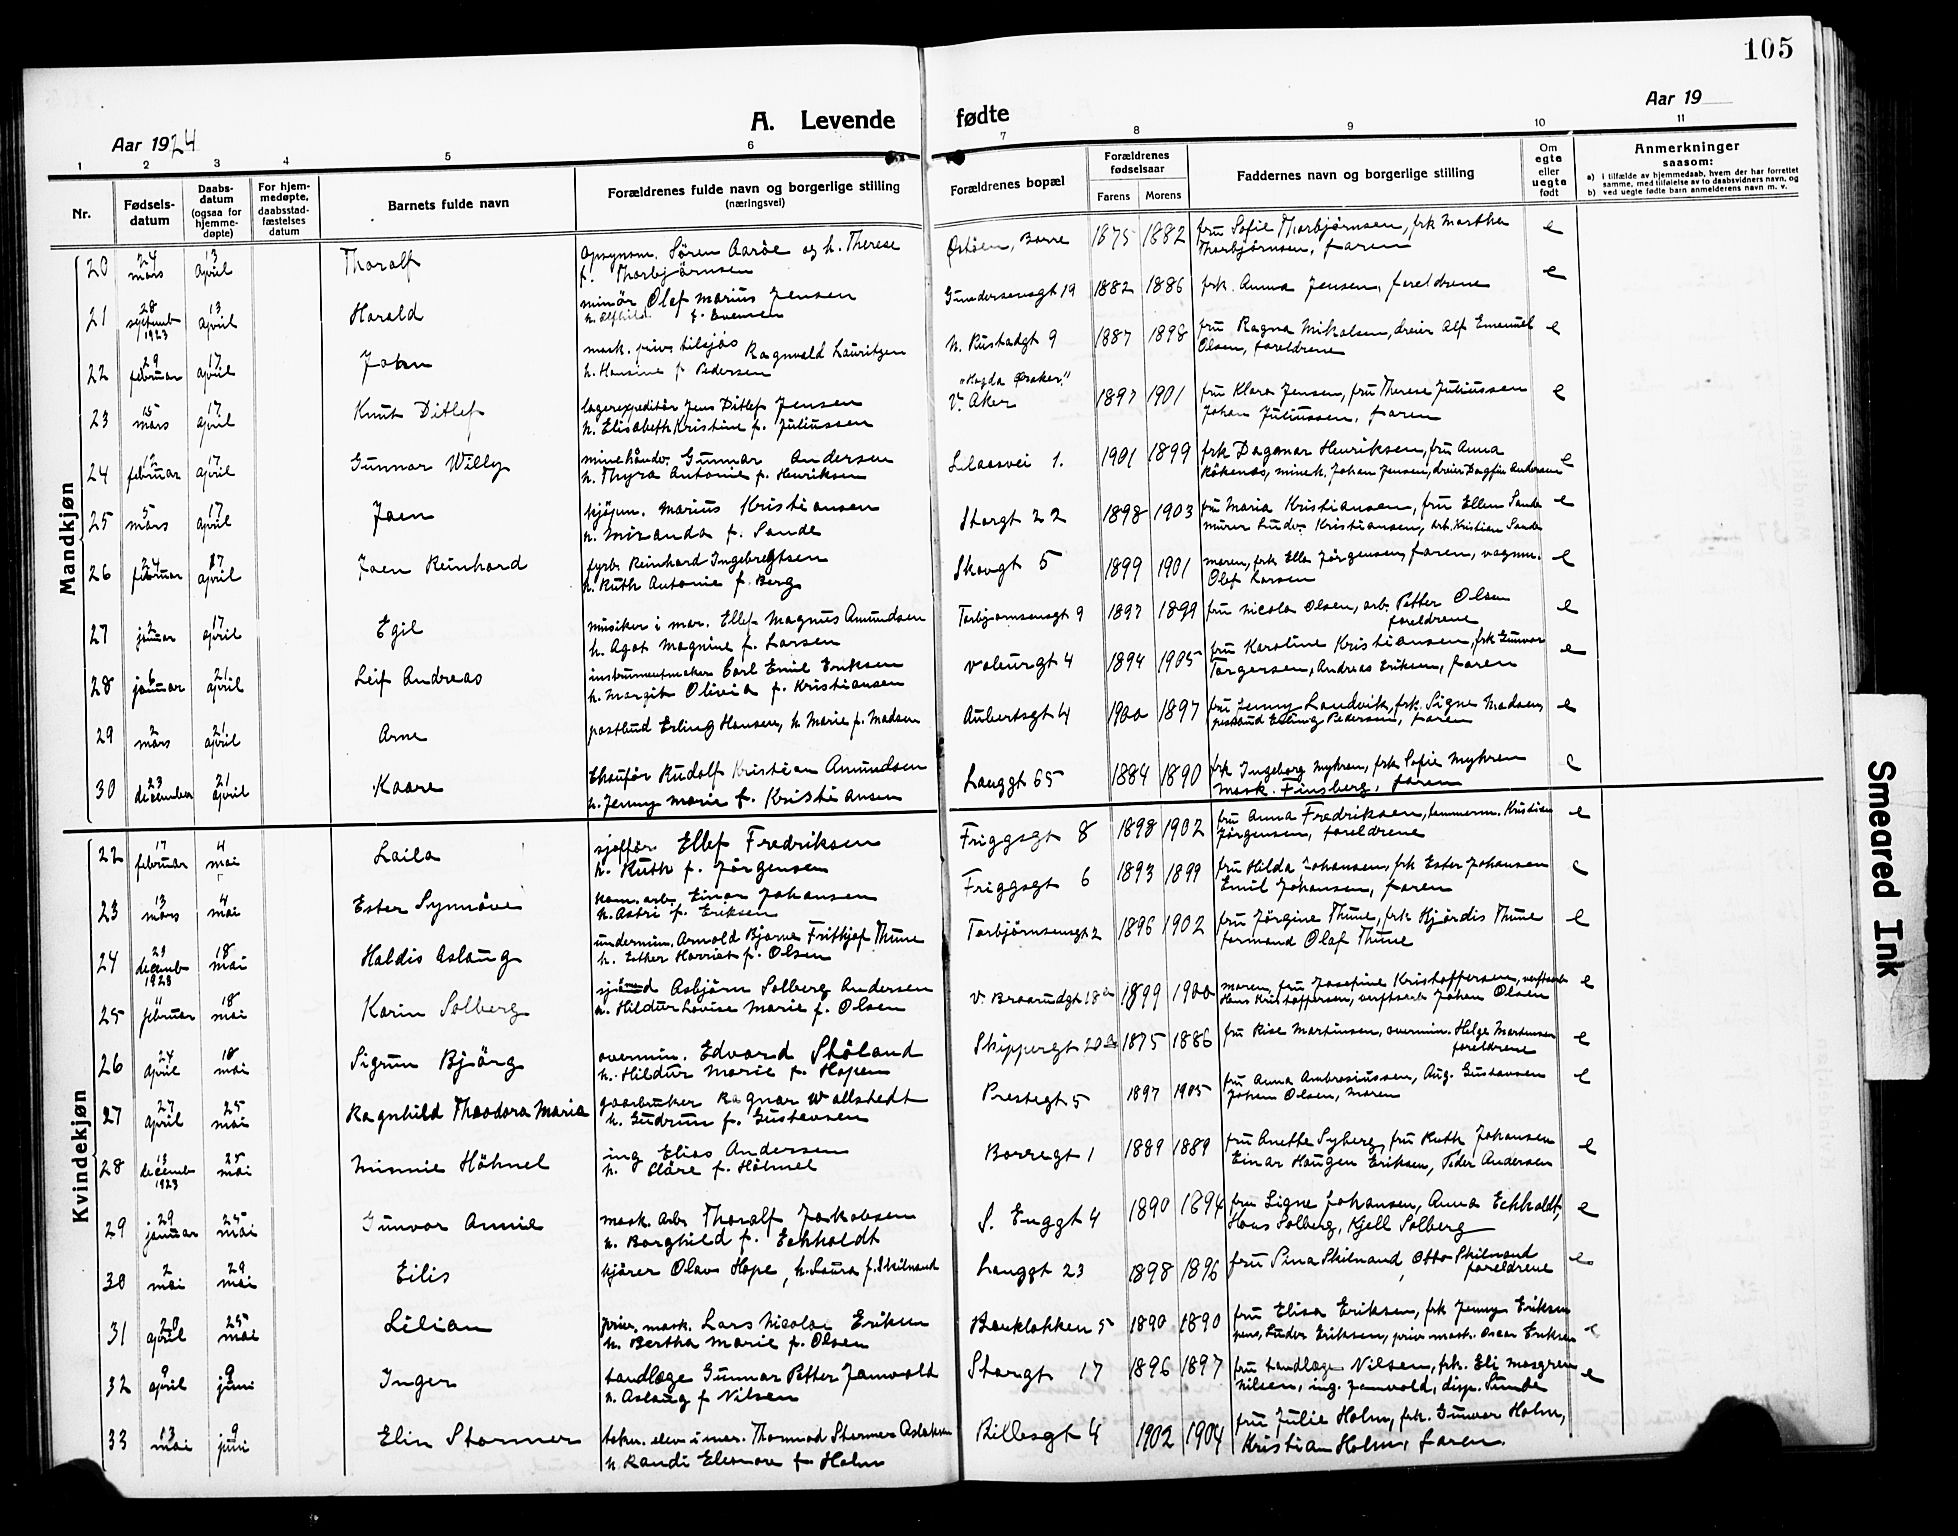 105
Aar 1924
A. Levende fødte
Aar 19
1 2 3 4 5 6 7 8 9 10 11
Nr.
Fødsels-datum
Daabs-datum (ogsaa for hjemme-døpte)
For hjem-medøpte, daabsstad-fæstelses datum
Barnets fulde navn
Forældrenes fulde navn og borgerlige stilling (næringsvei)
Forældrenes bopæl
Forældrenes fødselsaar
Farens Morens
Faddernes navn og borgerlige stilling
Om egte eller uegte født
Anmerkninger
saasom:
a) i tilfælde av hjemmedaab, hvem der har forrettet samme, med tilføielse av to daabsvidners navn, og
b) ved uegte fødte barn anmelderens navn m. v.
Mandkjøn
20 24 mars 13 april Thoralf opsynsm. Sören Aaröe og h. Therese f. Thorbjörnsen Østöen, Borre 1875 1882 fru Sofie Thorbjørnsen, frk Marthea Thorbjørnsen, faren e
21 28 septemb 1923 13 april Harald minör Olef Marius Jensen h. Alfhild f. Evensen Gundersensgt 19 1882 1886 frk. Anna Jensen, foreldrene e
22 29 februar 17 april Johan mask. Ragnvald Lauritzen h. Hansine f. Pedersen N. Rustadgt 9 1887 1898 fru Ragna Mikalsen, dreier Alf Emanuel Olsen, foreldrene e
23 15 mars 17 april Knut Ditlef lagerexpeditör Jens Ditlef Jensen h. Elisabeth Kristine f. Juliussen V. Aker 1897 1901 fru Klara Jensen, fru Therese Juliussen Johan Juliussen, faren e
24 12 februar 17 april Gunnar Willy minehåndv. Gunnar Andersen h. Thyra Antonie f. Henriksen 1. 1901 1899 frk Dagmar Henriksen, fru Anna Rökenæs, minek. Johan Jensen, dreier Dagfin Andersen e
25 5 mars 17 april Jaen kjøpm. Marius Kristiansen h. Miranda f. Sande Storgt 22 1898 1903 fru Maria Kristiansen, fru Ellen Sande murer Ludv. Kristiansen, arb. Kristian Sande e
26 24 februar 17 april Jaen Reinhard fyrb. Reinhard Ingebregtsen h. Ruth Antonie f. Berg Skovgt 5 1899 1901 moren, frk Ella Jørgensen, faren, vognm. Olef Larsen e
27 2 januar 17 april Egil musiker i mar. Ellef Magnus Amundsen h. Agot Magnine f. Larsen Torbjørnsensgt 9 1897 1899 fru Nicola Olsen, arb. Petter Olsen foreldrene e
28 6 januar 21 april Leif Andreas instrumentmaker Carl Emil Eriksen h. Margit Olivia f. Kristiansen Valeurgt 4 1894 1905 fru Karoline Kristiansen, frk Gunvor Torgersen, Andreas Eriksen, faren e
29 2 mars 21 april Arne postbud Erling Hansen, h Marie f. Madsen Aubertsgt 4 1900 1897 fru Jenny Landvik, frk. Signe Madsen, postbud Erling Pedersen, faren e
30 23 december 21 april Kaare Chaufør Rudolf Kristian Amundsen h. Jenny Marie f. Kristiansen Langgt 65 1884 1890 frk Ingeborg Myhren, frk Sofie Myhren mask. Finsberg, faren e
Kvindekjøn
22 17 februar 4 mai Laila sjøffør Ellef Fredriksen h. Ruth f. Jørgensen Friggsgt 8 1898 1902 fru Anna Fredriksen, tømmerm. Kristian Jørgensen, foreldrene e
23 13 mars 4 mai Ester Synnöve kom. arb. Einar Johansen h. Astri f. Eriksen Friggsgt 6 1893 1899 fru Hilda Johansen, frk Ester Johansen Emil Johansen, faren e
24 23 decemb 1923 18 mai Haldis Aslaug undermin. Arnold Bjarne Frithjof Thune h. Esther Harriet f. Olsen Torbjörnsensgt 2 1896 1902 fru Jørgine Thune, frk Hjördis Thune formand Olaf Thune e
25 11 februar 18 mai Karin Solberg sjömand Asbjörn Solberg Andersen h. Hildur Lovise Marie f. Olsen V. Braarudgt 18 1899 1900 moren, fru Josefine Kristoffersen, verftsarb Hans Kristoffersen, verftsarb Johan Olsen e
26 24 april 18 mai Sigrun Bjørg overmin. Edvard Støland h. Hildur Marie f. Hopen Skippergt 20 1875 1886 fru Rise Martinsen, overmin. Helge Martinsen foreldrene e
27 27 april 25 mai Ragnhild Theodora Maria gaardbruker Ragnar Wallstedt h. Gudrun f. Gustavsen Prestegt 5 1897 1905 fru Anna Ambrosiussen, Aug. Gustavsen Johan Olsen, moren e
28 13 decemb 1923 25 mai Minnie Höhnel ing Elias Andersen h. Cläre f. Höhnel Borregt 1 1889 1889 fru Anethe Syberg, fru Ruth Johansen Einar Haugen Eriksen, Peder Andersen e
29 29 januar 25 mai Gunvor Annie mask. arb. Thoralf Jakobsen h. Borghild f. Eckholdt S. Enggt 4 1890 1894 fru Signe Johansen, Anna Eckholdt, Hans Solberg, Kjell Solberg e
30 2 mai 29 mai Eilis kjører Olav Hope, h. Laura f. Skilnand Langgt 23 1898 1896 fru Sina Skilnand, Otto Skilnand foreldrene e
31 28 april 25 mai Lilian mask. Lars Nicolai Eriksen h. Bertha Marie f. Olsen Bankløkken 5 1890 1890 fru Elisa Eriksen, frk Jenny Eriksen pens. Ludv. Eriksen, mask. Oscar Eriksen e
32 9 april 9 juni Inger tandlæge Gunnar Petter Jamvold h. Aslaug f Nilsen Storgt 17 1896 1897 fru tandlæge Nilsen, frk. Eli Mosgren Nilsen, ing. Jamvold, disp. Sunde e
33 13 mai 9 juni Elin Stormer tekn. elev i mar. Thormod Stormer Aslaksen h. Randi Eleonore f. Holm Billesgt 4 1902 1904 fru Julie Holm, frk. Gunvor Holm, Kristian Holm, faren.
Smeared Ink